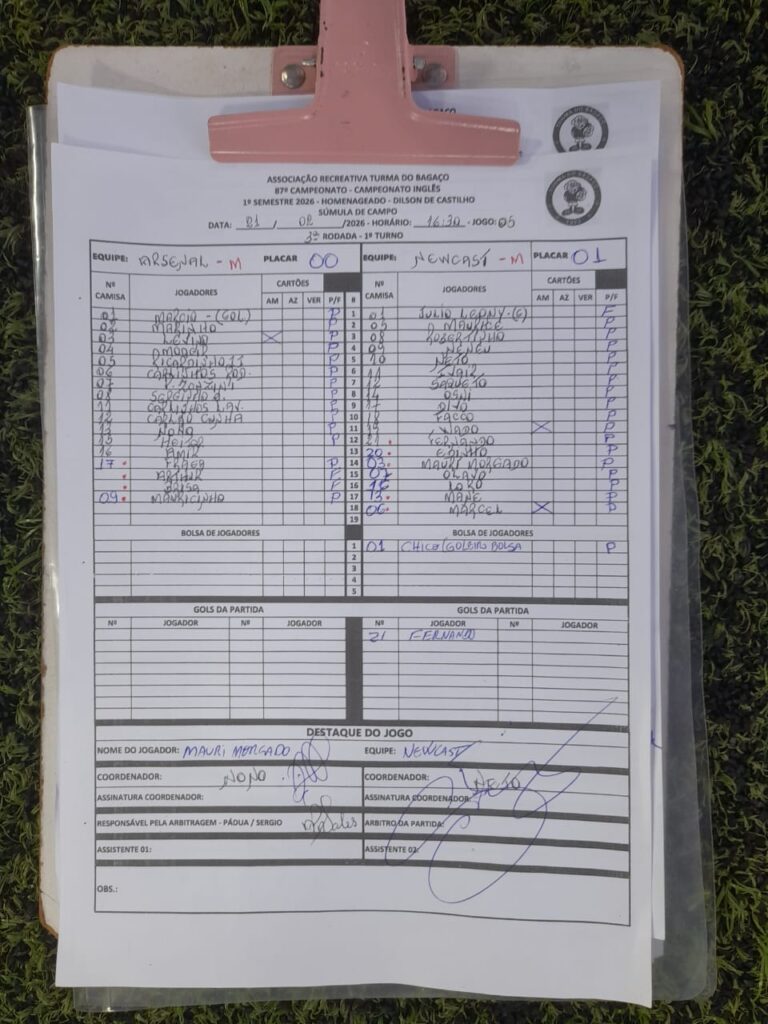 ASSOCIAÇÃO RECREATIVA TURMA DO BAGAÇO
87º CAMPEONATO - CAMPEONATO INGLÊS
1º SEMESTRE 2026 - HOMENAGEADO - DILSON DE CASTILHO
SÚMULA DE CAMPO
DATA: 01 / 02 /2026 - HORÁRIO: 16:30 - JOGO: 05
3ª RODADA - 1º TURNO
EQUIPE: ARSENAL - M PLACAR 00 EQUIPE: NEWCAST - M PLACAR 01
Nº CAMISA JOGADORES CARTÕES AM AZ VER P/F # Nº CAMISA JOGADORES CARTÕES AM AZ VER P/F
01 MARCIO - (GOL) P 1 01 JULIO LEONY (G) F
02 MARINHO P 2 05 MAURICE P
03 LEVINO X P 3 08 ROBERTINHO P
04 AMODER P 4 09 NENEU P
05 RICARDINHO JJ P 5 10 NETO P
06 CARLINHOS ROD. P 6 11 P
07 P 7 12 SAQUETO P
08 SERGINHO P 8 14 OSNI P
11 CARLINHOS LAV. P 9 17 P
12 CARLÃO CUNHA P 10 18 FACCO P
13 NONO P 11 19 WADO X P
15 HEITOR P 12 21 FERNANDO P
16 AMIR 13 20 EDINHO P
17 FRAGA P 14 03 MAURI MORGADO P
ARTHUR F 15 07 OLAVO P
BRISA F 16 16 LORO P
09 MAURICINHO P 17 13 MANE P
18 06 MARCEL X P
19
BOLSA DE JOGADORES BOLSA DE JOGADORES
1 01 CHICO/GOLEIRO BOLSA P
2
3
4
5
GOLS DA PARTIDA GOLS DA PARTIDA
Nº JOGADOR Nº JOGADOR Nº JOGADOR Nº JOGADOR
21 FERNANDO
DESTAQUE DO JOGO
NOME DO JOGADOR: MAURI MORGADO EQUIPE: NEWCAST
COORDENADOR: NONO COORDENADOR: NETO
ASSINATURA COORDENADOR: ASSINATURA COORDENADOR:
RESPONSÁVEL PELA ARBITRAGEM - PÁDUA / SERGIO ARBITRO DA PARTIDA:
ASSISTENTE 01: ASSISTENTE 02:
OBS.: